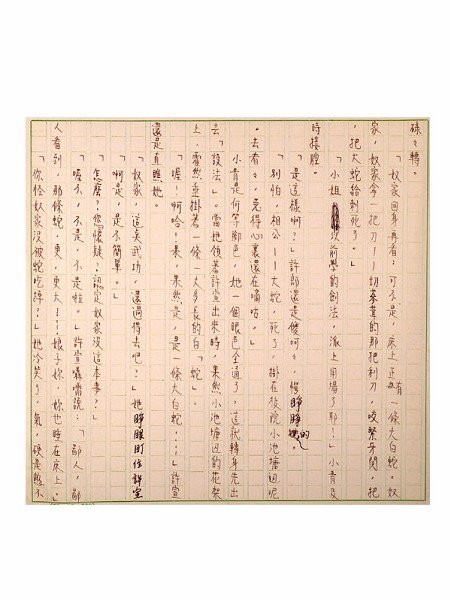 碌々轉。
「奴家回身再看，可不是，床上正有一條大白蛇。奴
家，奴家拿一把刀——切菜葉的那把利刀，咬緊牙關，把
，把大蛇給刺死了。」
「小姐　　從前學的劍法，派上用場了耶！」小青及
時接腔。
「是這樣啊？」許郎還是儍呵呵，愣睜睜的
「別怕，相公——大蛇，死了，掛在後院小池塘邊呢
。去看看，免得心裏還在嘀咕。」
小青是何等腳色，她一個眼色全通了，這就轉身先出
去「設法」。當她領著許宣出來時，果然小池塘邊的花架
上，霍然垂掛著一條一丈多長的白「蛇」。
「喔！啊哈，果，果然是，是一條大白蛇……」許宣
還是直瞧她。
「奴家，這點武功，還過得去吧？」她睜眼盯住許宣
「啊是，是不簡單。」
「怎麼？您懷疑？認定奴家沒這本事？」
「喔不，不是，不是啦。」許宣囁嚅說：「鄙人，鄙
人看到，那條蛇，更，更大……娘子妳，妳也睡在床上。」
「你怪奴家沒被蛇吃掉？」她冷笑了，氣，硬是憋不